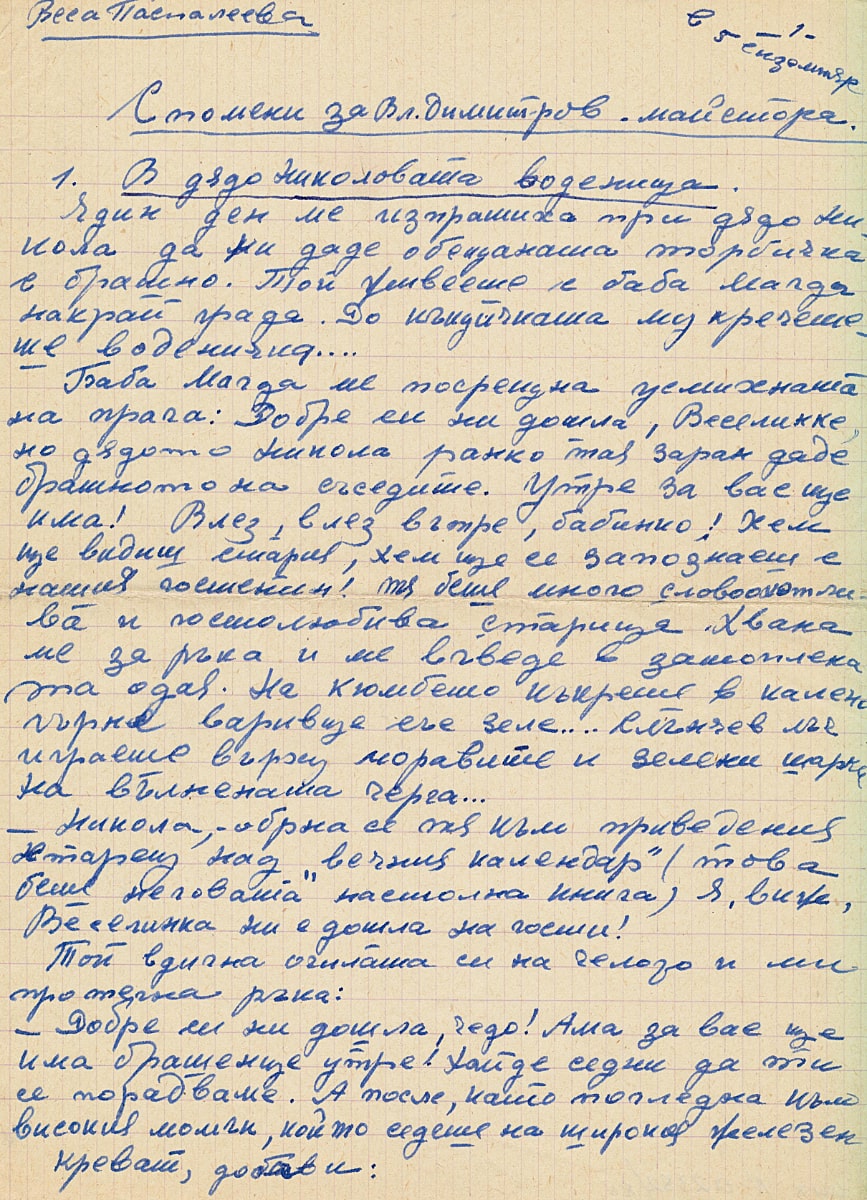 Веса Паспалеева
- 1 -
в 5 екземпляр
Спомени за Вл. Димитров - майстора.
1. В дядо Николовата воденица.
Един ден ме изпратиха при дядо Ни-
кола да ни даде обещаната торбичка
с брашно. Той живееше с баба Магда
накрай града. До къщичката му кречета-
ше воденичка....
Баба Магда ме посрещна усмихната
на прага: Добре си ни дошла, Веселинке,
но дядото Никола ранко тая заран даде
брашното на съседите. Утре за вас ще
има! Влез, влез вътре, бабинко! Хем
ще видиш стария, хем ще се запознаеш с
нашия гостенин! Тя беше много словоохотли-
ва и гостолюбива старица. Хвана
ме за ръка и ме въведе в затоплена
та одая. На кюмбето къкреше в калено
гърне вариво със зеле.... Слънчев лъч
играеше върху моравите и зелени шарки
на вълнената черга...
– Никола, - обърна се тя към приведения
старец над "вечния календар" (това
беше неговата настолна книга) я, виж,
Веселинка ни е дошла на гости!
Той вдигна очилата си на челото и ми
протегна ръка:
– Добре си ни дошла, чедо! Ама за вас ще
има брашенце утре! Хайде седни да ти
се порадваме. А после, като погледна към
високия момък, който седеше на широкия железен
креват, добави: